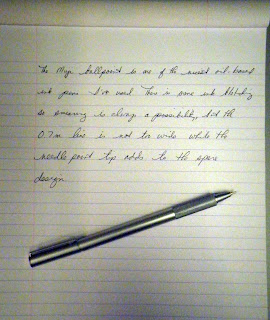 The Muji ballpoint is one of the nicest oil based
ink pens I've used. There is some ink blotching
so smearing is always a possibility, but the
0.7mm line is not too wide while the
needle point tip adds to the spare
design